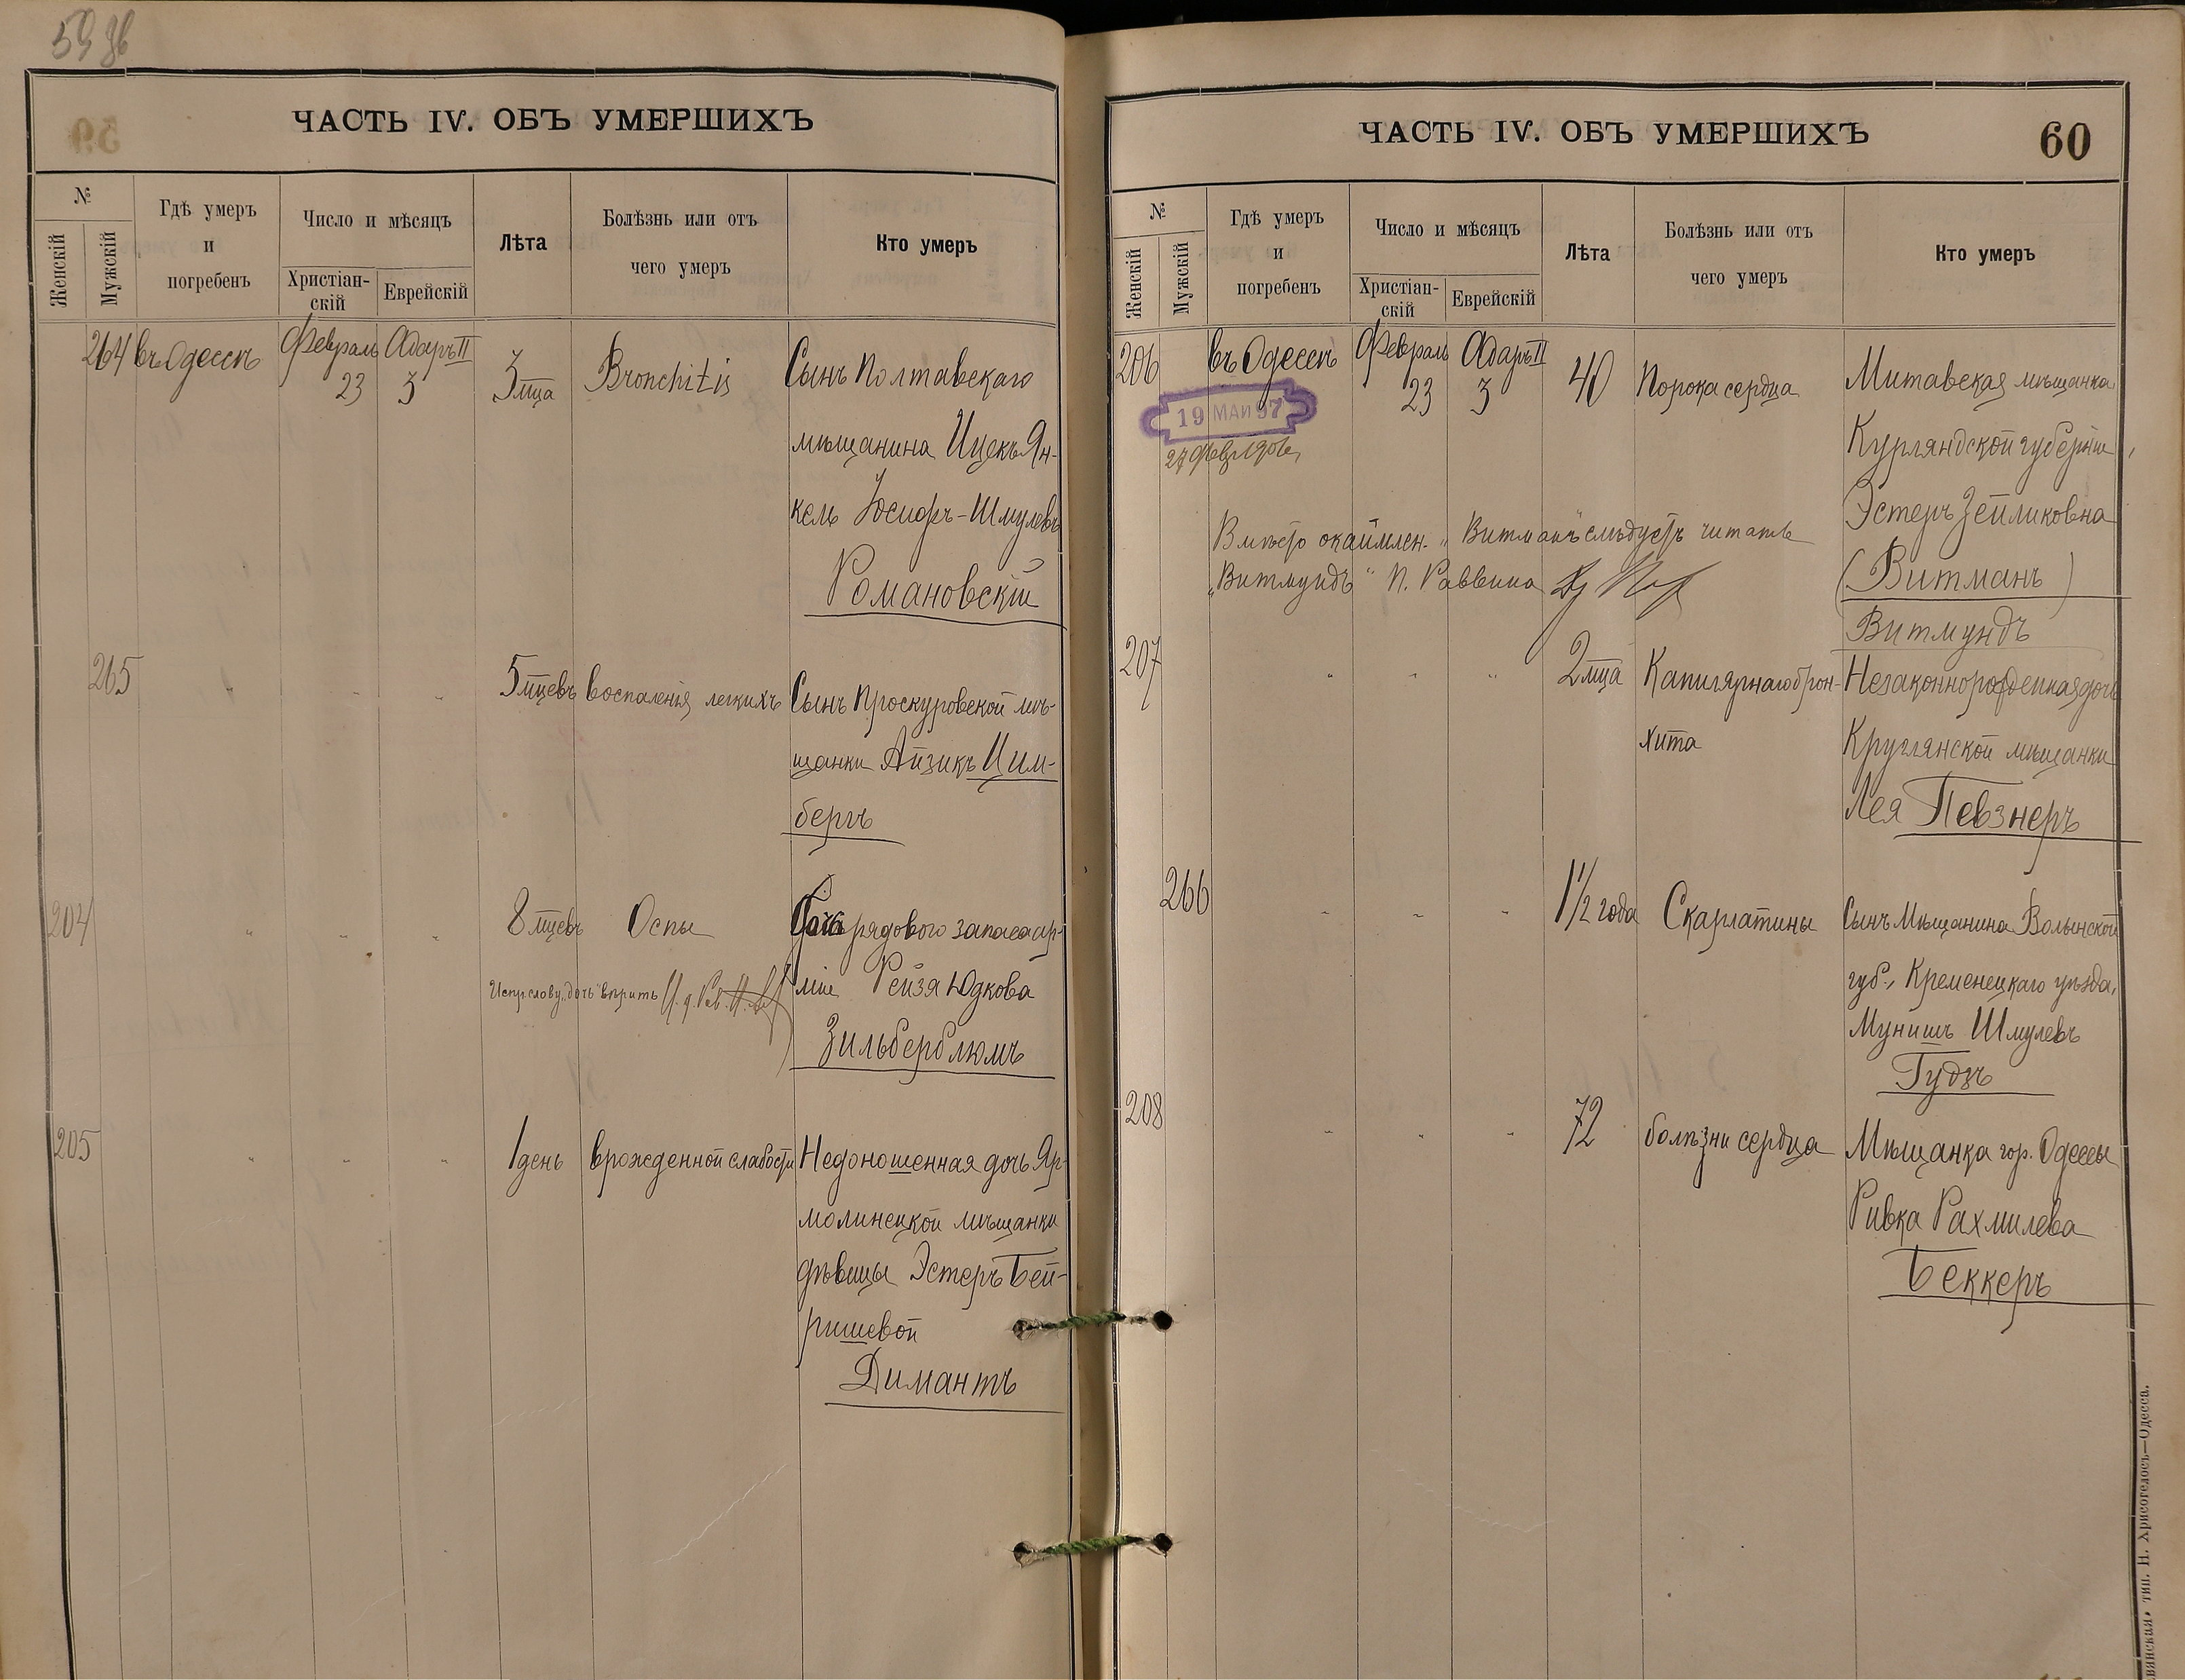 59 об
ЧАСТЬ IV. ОБЪ УМЕРШИХЪ
№
Женскій
Мужскій
Гдѣ умеръ
и
погребенъ
Число и мѣсяцъ
Христіан-
скій
Еврейскій
Лѣта
Болѣзнь или отъ
чего умеръ
Кто умеръ
264 въ Одессѣ Февраль 23 Адаръ II 3 3 мца Bronchitis Сынъ Полтавскаго
мѣщанина Ицекъ Ян-
кель Іосифъ-Шмулевъ
Романовскій
265 " " " 5 мцевъ воспаленія легкихъ Сынъ Проскуровской мѣ-
щанки Айзикъ Цим-
бергъ
204 " " " 8 мцевъ Оспы Дочь рядового запаса ар-
міи Рейзя Юдкова
Испр. слову „дочь“ вѣрить И. д. Рав.
Зильберблюмъ
205 " " " 1 день врожденной слабости Недоношенная дочь Яр-
молинецкой мѣщанки
дѣвицы Эстеръ Бей-
ришевой
Димантъ
ЧАСТЬ IV. ОБЪ УМЕРШИХЪ 60
№
Женскій
Мужскій
Гдѣ умеръ
и
погребенъ
Число и мѣсяцъ
Христіан-
скій
Еврейскій
Лѣта
Болѣзнь или отъ
чего умеръ
Кто умеръ
206 въ Одессѣ Февраль 23 Адаръ II 3 40 Порока сердца Митавская мѣщанка
Курляндской губерніи,
19 МАИ 97
Эстеръ Зейликовна
Вмѣсто окаймлен. „Витманъ“ слѣдуетъ читать
„Витмундъ“ П. Раввина
(Витманъ)
Витмундъ
207 " " " 2 мца Капилярнаго брон- Незаконнорожденная дочь
хита Круглянской мѣщанки
Лея Певзнеръ
266 " " " 1 1/2 года Скарлатины Сынъ Мѣщанина Волынской
губ., Кременецкаго уѣзда,
Мунишъ Шмулевъ
Гудзъ
208 " " " 72 болѣзни сердца Мѣщанка гор. Одессы
Ривка Рахмилева
Беккеръ
тип. Н. Хрисогелосъ—Одесса.